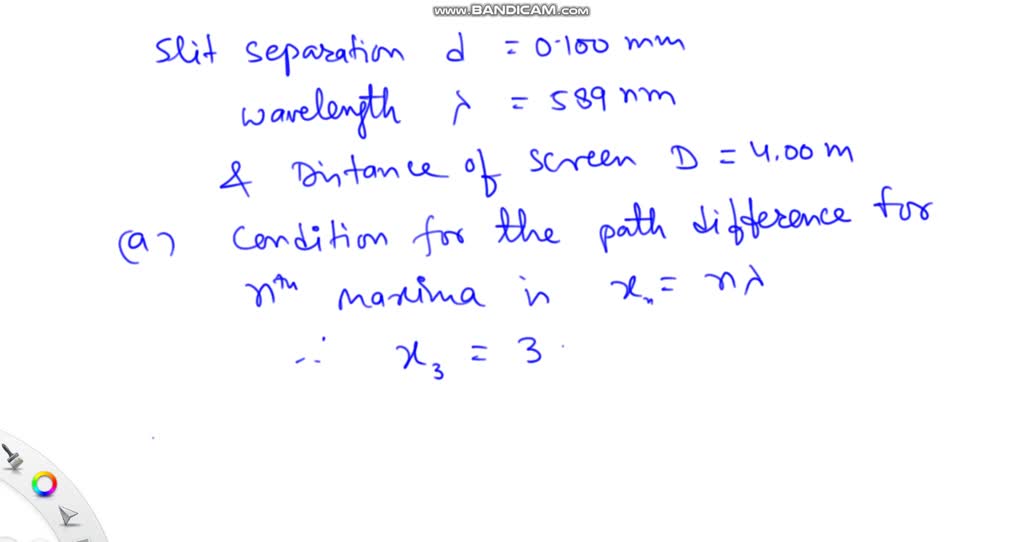 www.BANDICAM.com
Slit separation d = 0.100 mm
wavelength λ = 589 nm
& Distance of screen D = 4.00 m
(a) condition for the path difference for
nth maxima is xn = nλ
∴ x3 = 3